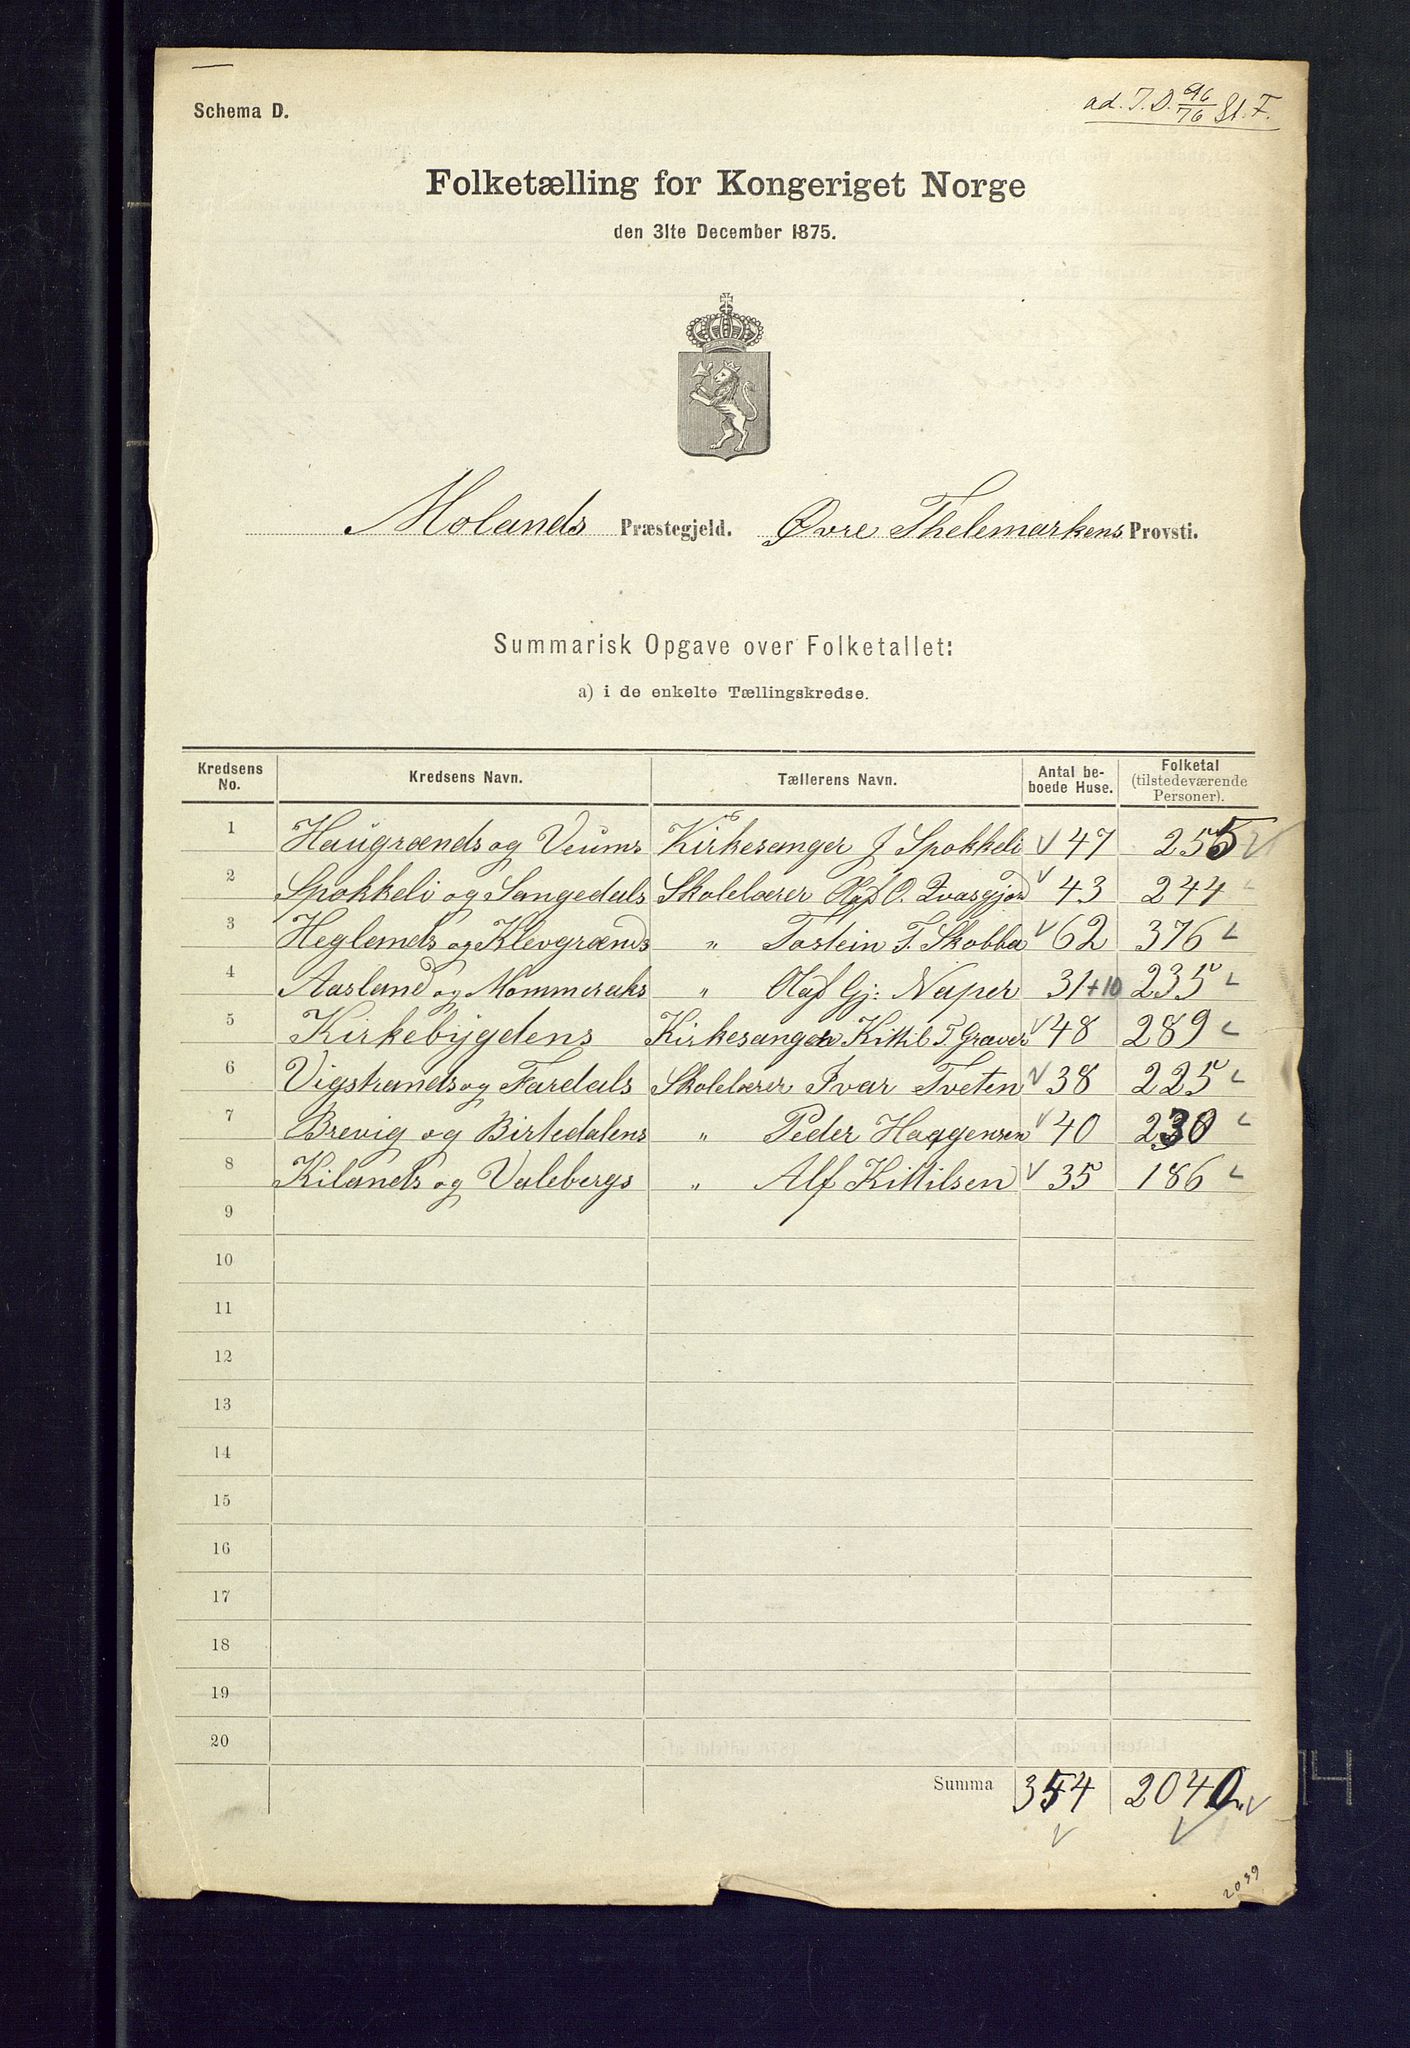 Schema D.
ad. J. D. 96/76 St. F.
Folketælling for Kongeriget Norge
den 31te December 1875.
Molands Præstegjeld. Øvre Thelemarkens Provsti.
Summarisk Opgave over Folketallet:
a) i de enkelte Tællingskredse.
Kredsens No. Kredsens Navn. Tællerens Navn. Antal beboede Huse. Folketal (tilstedeværende Personer).
1 Haugrænds og Veums Kirkesanger J Spokkeli 47 255
2 Spokkeli og Langedals Skolelærer Olaf O. Kvasgjerd 43 244
3 Heglands og Klevgrænds " Tostein T. Skobba 62 376
4 Aasland og Mommeraks " Olaf Gj: Naper 31+10 235
5 Kirkebygdens Kirkesanger Kittil T. Graver 48 289
6 Vigstrands og Fardals Skolelærer Ivar Tveten 38 225
7 Brevig og Birtedalens " Peder Haggensen 40 230
8 Kilands og Valebergs " Alf Kittilsen 35 186
9
10
11
12
13
14
15
16
17
18
19
20
Summa 354 2040
2039